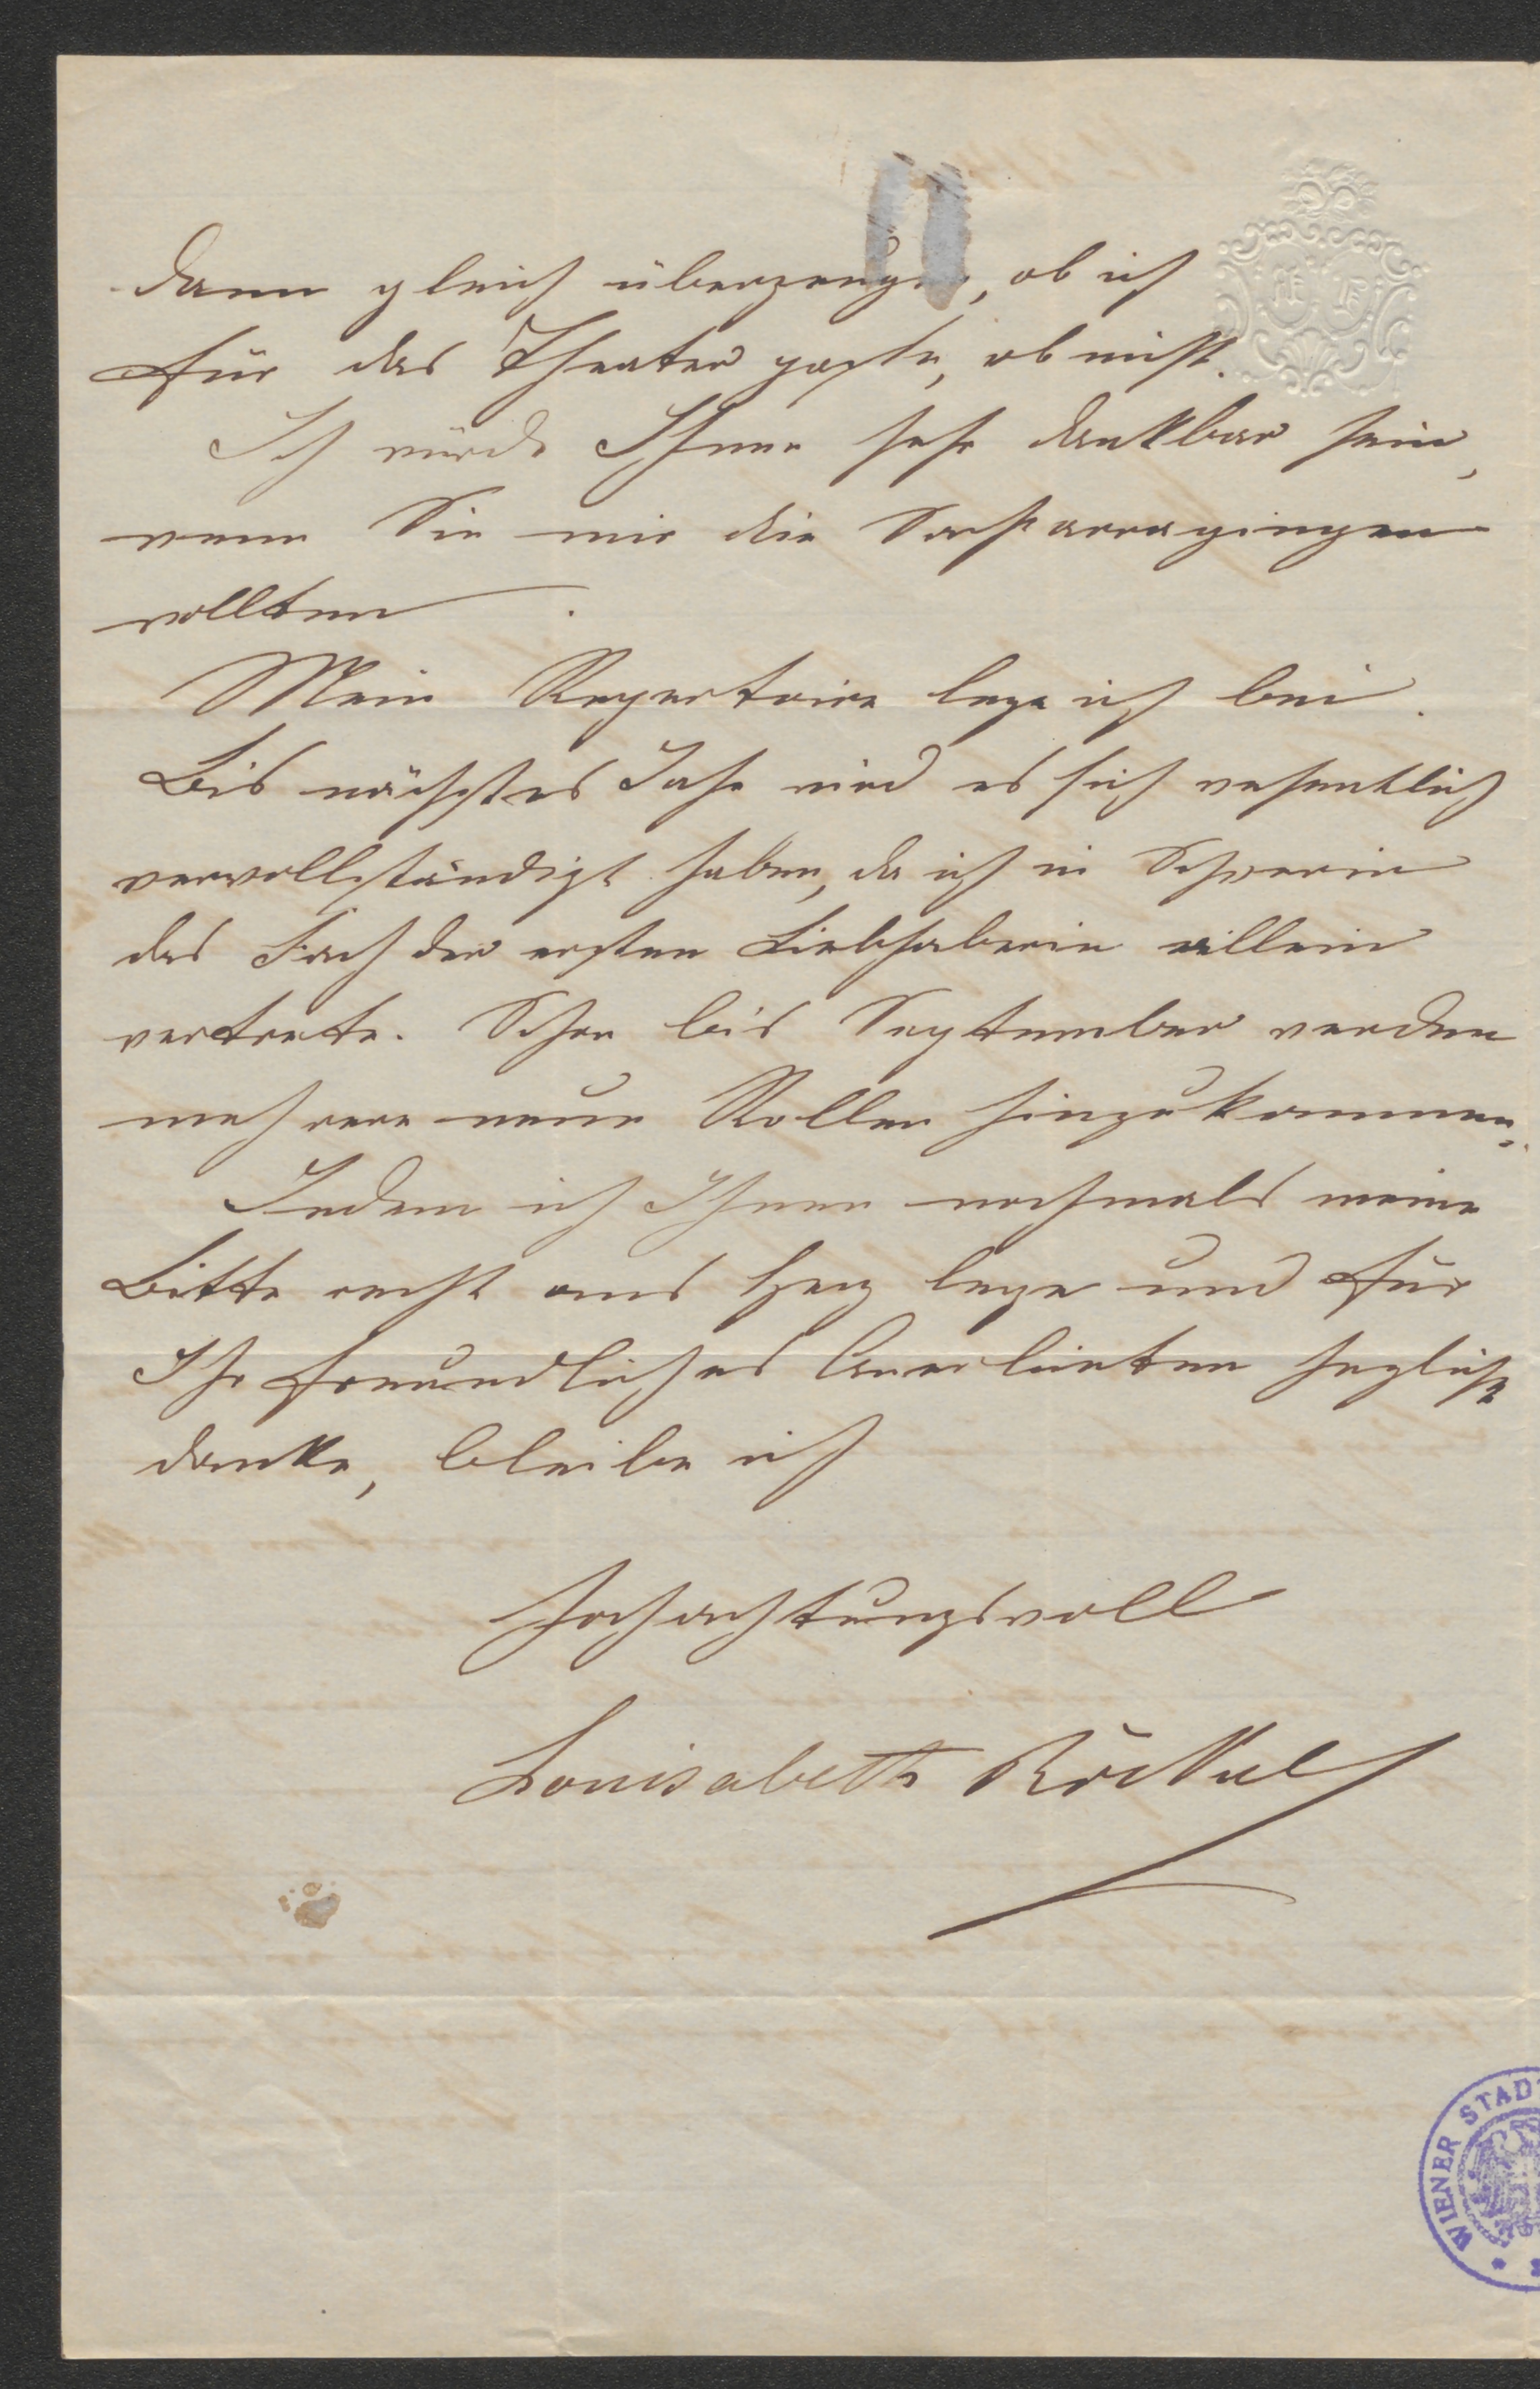 dann gleich überzeugen, ob ich
für das Theater passe, ob nicht.
Ich würde Ihnen sehr dankbar sein,
wenn Sie mir die Sache arragingen
wollten.
Mein Repertoire lege ich bei.
Bis nächstes Jahr wird es sich wesentlich
vervollständigt haben, da ich in Schwerin
das Fach der ersten Liebhaberin allein
vertrete. Schon bis September werden
mehrere neue Rollen hinzukommen.
Indem ich Ihnen nochmals meine
Bitte recht ans Herz lege und für
Ihr freundliches Anerbieten herzlichst
danke, bleibe ich
Hochachtungsvoll
Louisabeth Röckel
WIENER STAD